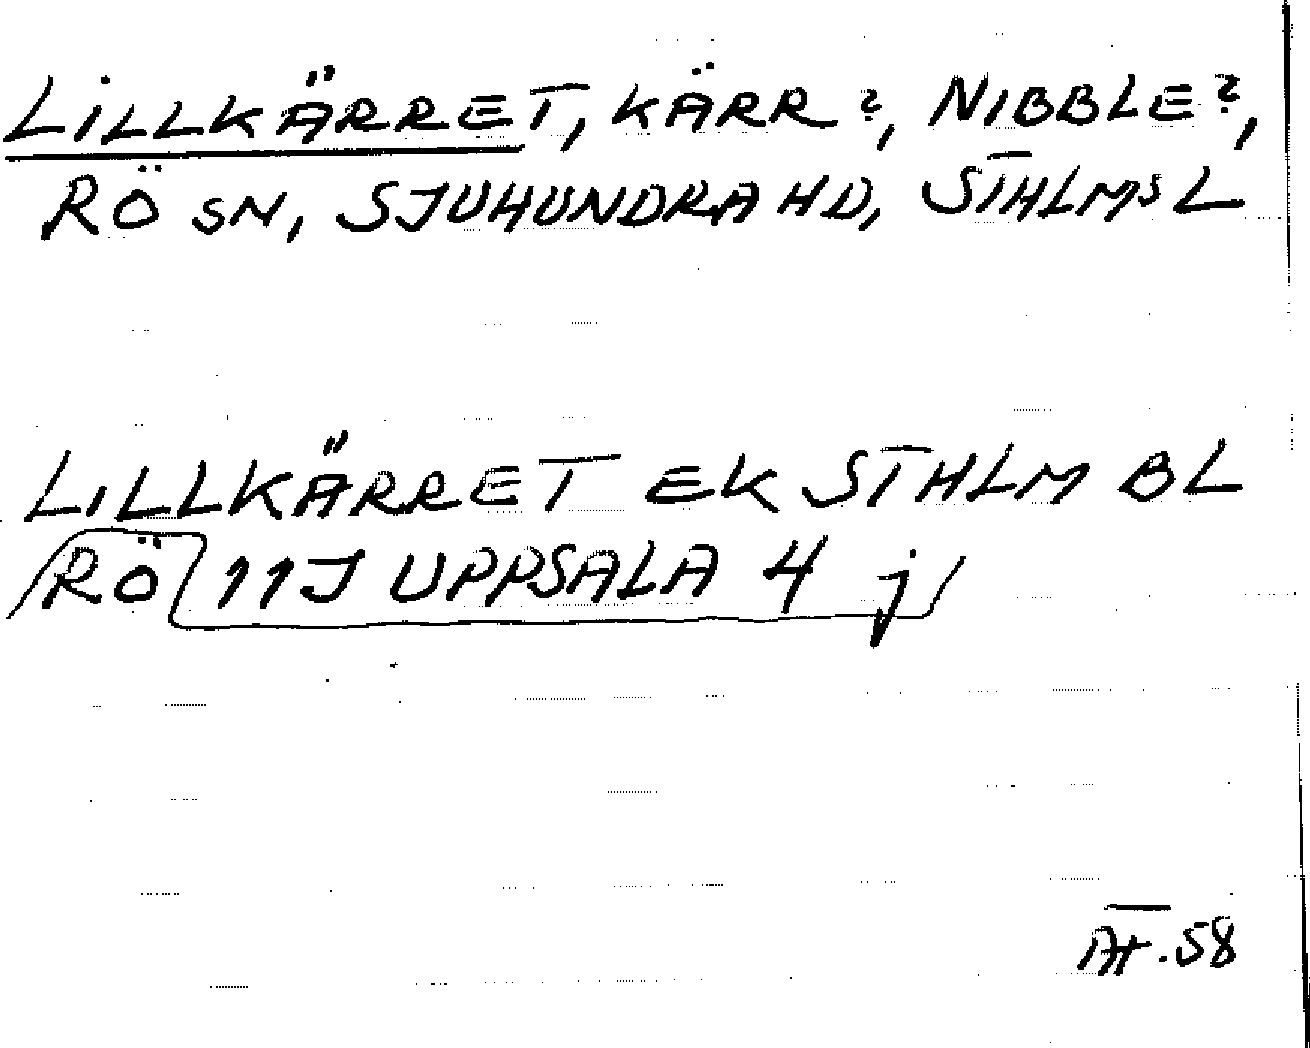 LILLKÄRRET, KÄRR?, NIBBLE?,
RÖ SN, SJUHUNDRA HD, STHLMS L
LILLKÄRRET EK STHLM BL
RÖ 11J UPPSALA 4 j
AT.58